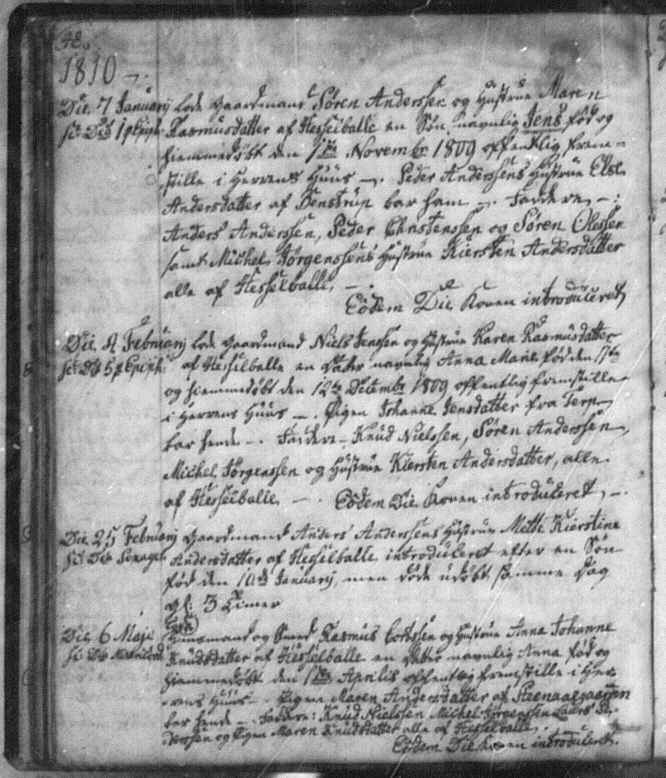 Ao.
1810
Die 7 Januarij lode Gaardmand Søren Anderssen og Hustrue Maren
Rasmusdatter af Hesselballe en Søn navnlig Jens, fød og
hiemmedøbt den 1ste Novembr 1809 offentlig frem-
stille i Herrens Huus. Peder Anderssens Hustrue Else
Andersdatter af Tenstrup bar ham. Faddere:
Anders Anderssen, Peder Christenssen og Søren Olessen
samt Michel Jørgenssens Hustrue Kiersten Andersdatter
alle af Hesselballe.
Eodem Die Konen introduceret
Die 4 Februarij lode Gaardmand Niels Jenssen og Hustrue Karen Rasmusdatter
sc: Do 5 p Epiph: af Hesselballe en Datter navnlig Anna Marie fød den
og hiemmedøbt den 12te Decembr 1809 offentlig fremstille
i Herrens Huus. Pigen Johanne Jensdatter fra Terp
bar hende. Faddere Knud Nielssen, Søren Anderssen,
Michel Jørgenssen og Hustrue Kiersten Andersdatter, alle
af Hesselballe. Eodem Die Konen introduceret.
Die 25 Februarij Gaardmand Anders Anderssens Hustrue Mette Kierstine
Andersdatter af Hesselballe introduceret efter en Søn
fød den 10de Januarij, men døde udøbt samme Dag
gl: 3 Timer
Die 6 Maji Huusmand og Smed Rasmus Hustrue Anna Johanne
Knudsdatter af Hesselballe en Datter navnlig Anna fød og
hiemmedøbt den Aprilis offentlig fremstille i Her-
rens Huus. Pigen Maren Andersdatter af
bar hende. Faddere: Knud Nielssen Michel Jørgenssen
og Pigen Maren Knudsdatter alle af Hesselballe.
Eodem Die Konen introduceret.